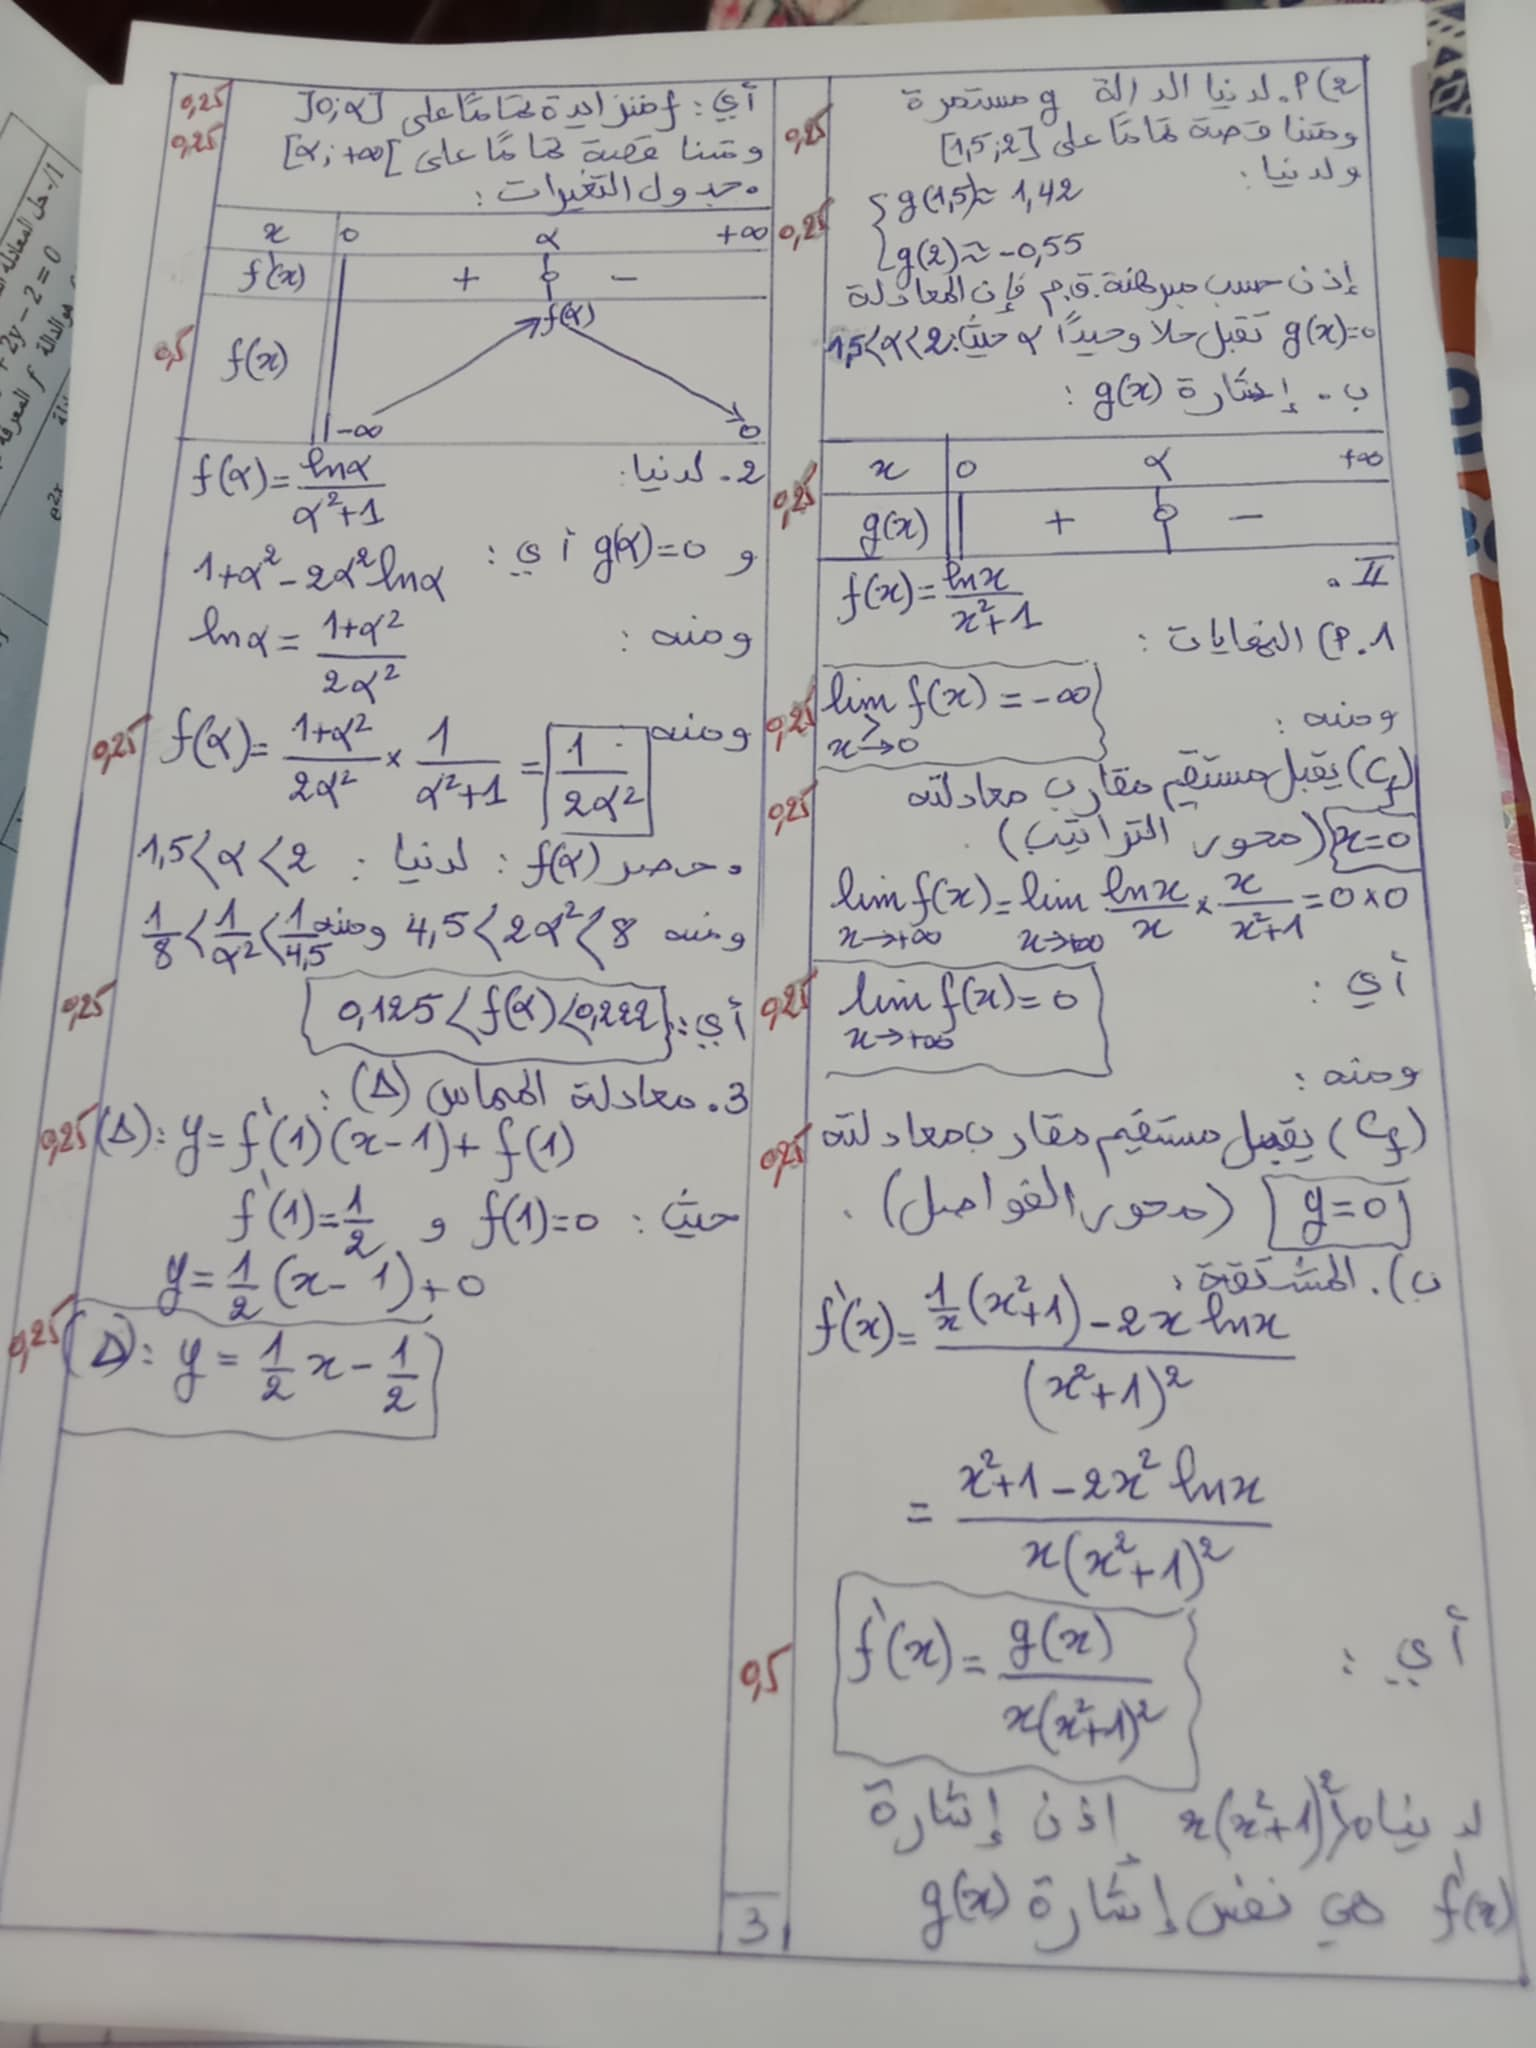 2) أ. لدينا الدالة g مستمرة
0,25 ومتناقصة تمامًا على [1,5;2]
ولدينا:
g(1,5)≈1,42
0,25
g(2)≈-0,55
إذن حسب مبرهنة.ق.م فإن المعادلة
g(x)=0 تقبل حلا وحيدًا α حيث: 1,5<α<2
ب. إشارة g(x) :
x 0 α +∞
0,25 g(x) + 0 -
II.
f(x)=lnx/(x²+1)
1. أ) النهايات :
0,25 lim f(x)=-∞
x→0 (>)
ومنه :
0,25 (Cf) يقبل مستقيم مقارب معادلته
x=0 (محور التراتيب).
lim f(x)=lim lnx/x × x/(x²+1)=0×0
x→+∞ x→+∞
أي :
0,25 lim f(x)=0
x→+∞
ومنه :
0,25 (Cf) يقبل مستقيم مقارب معادلته
y=0 (محور الفواصل).
ب). المشتقة :
f'(x)=(1/x(x²+1)-2x lnx)/(x²+1)²
=(x²+1-2x² lnx)/(x(x²+1)²)
أي :
0,5 f'(x)=g(x)/(x(x²+1)²)
لدينا x(x²+1)²>0 إذن إشارة
f'(x) هي نفس إشارة g(x)
0,25 أي : f متزايدة تمامًا على ]0;α]
0,25 ومتناقصة تمامًا على [α;+∞[
• جدول التغيرات :
x 0 α +∞
f'(x) + 0 -
f(α)
0,5 f(x)
-∞ 0
2. لدينا: f(α)=lnα/(α²+1)
و g(α)=0 أي : 1+α²-2α²lnα
ومنه : lnα=(1+α²)/(2α²)
0,25 ومنه f(α)=(1+α²)/(2α²)×1/(α²+1)=1/(2α²)
• حصر f(α) : لدينا : 1,5<α<2
ومنه 4,5<2α²<8 ومنه 1/8<1/α²<1/4,5
0,25 أي : 0,125<f(α)<0,222
3. معادلة المماس (Δ) :
0,25 (Δ): y=f'(1)(x-1)+f(1)
حيث : f(1)=0 و f'(1)=1/2
y=1/2(x-1)+0
0,25 (Δ): y=1/2 x-1/2
3